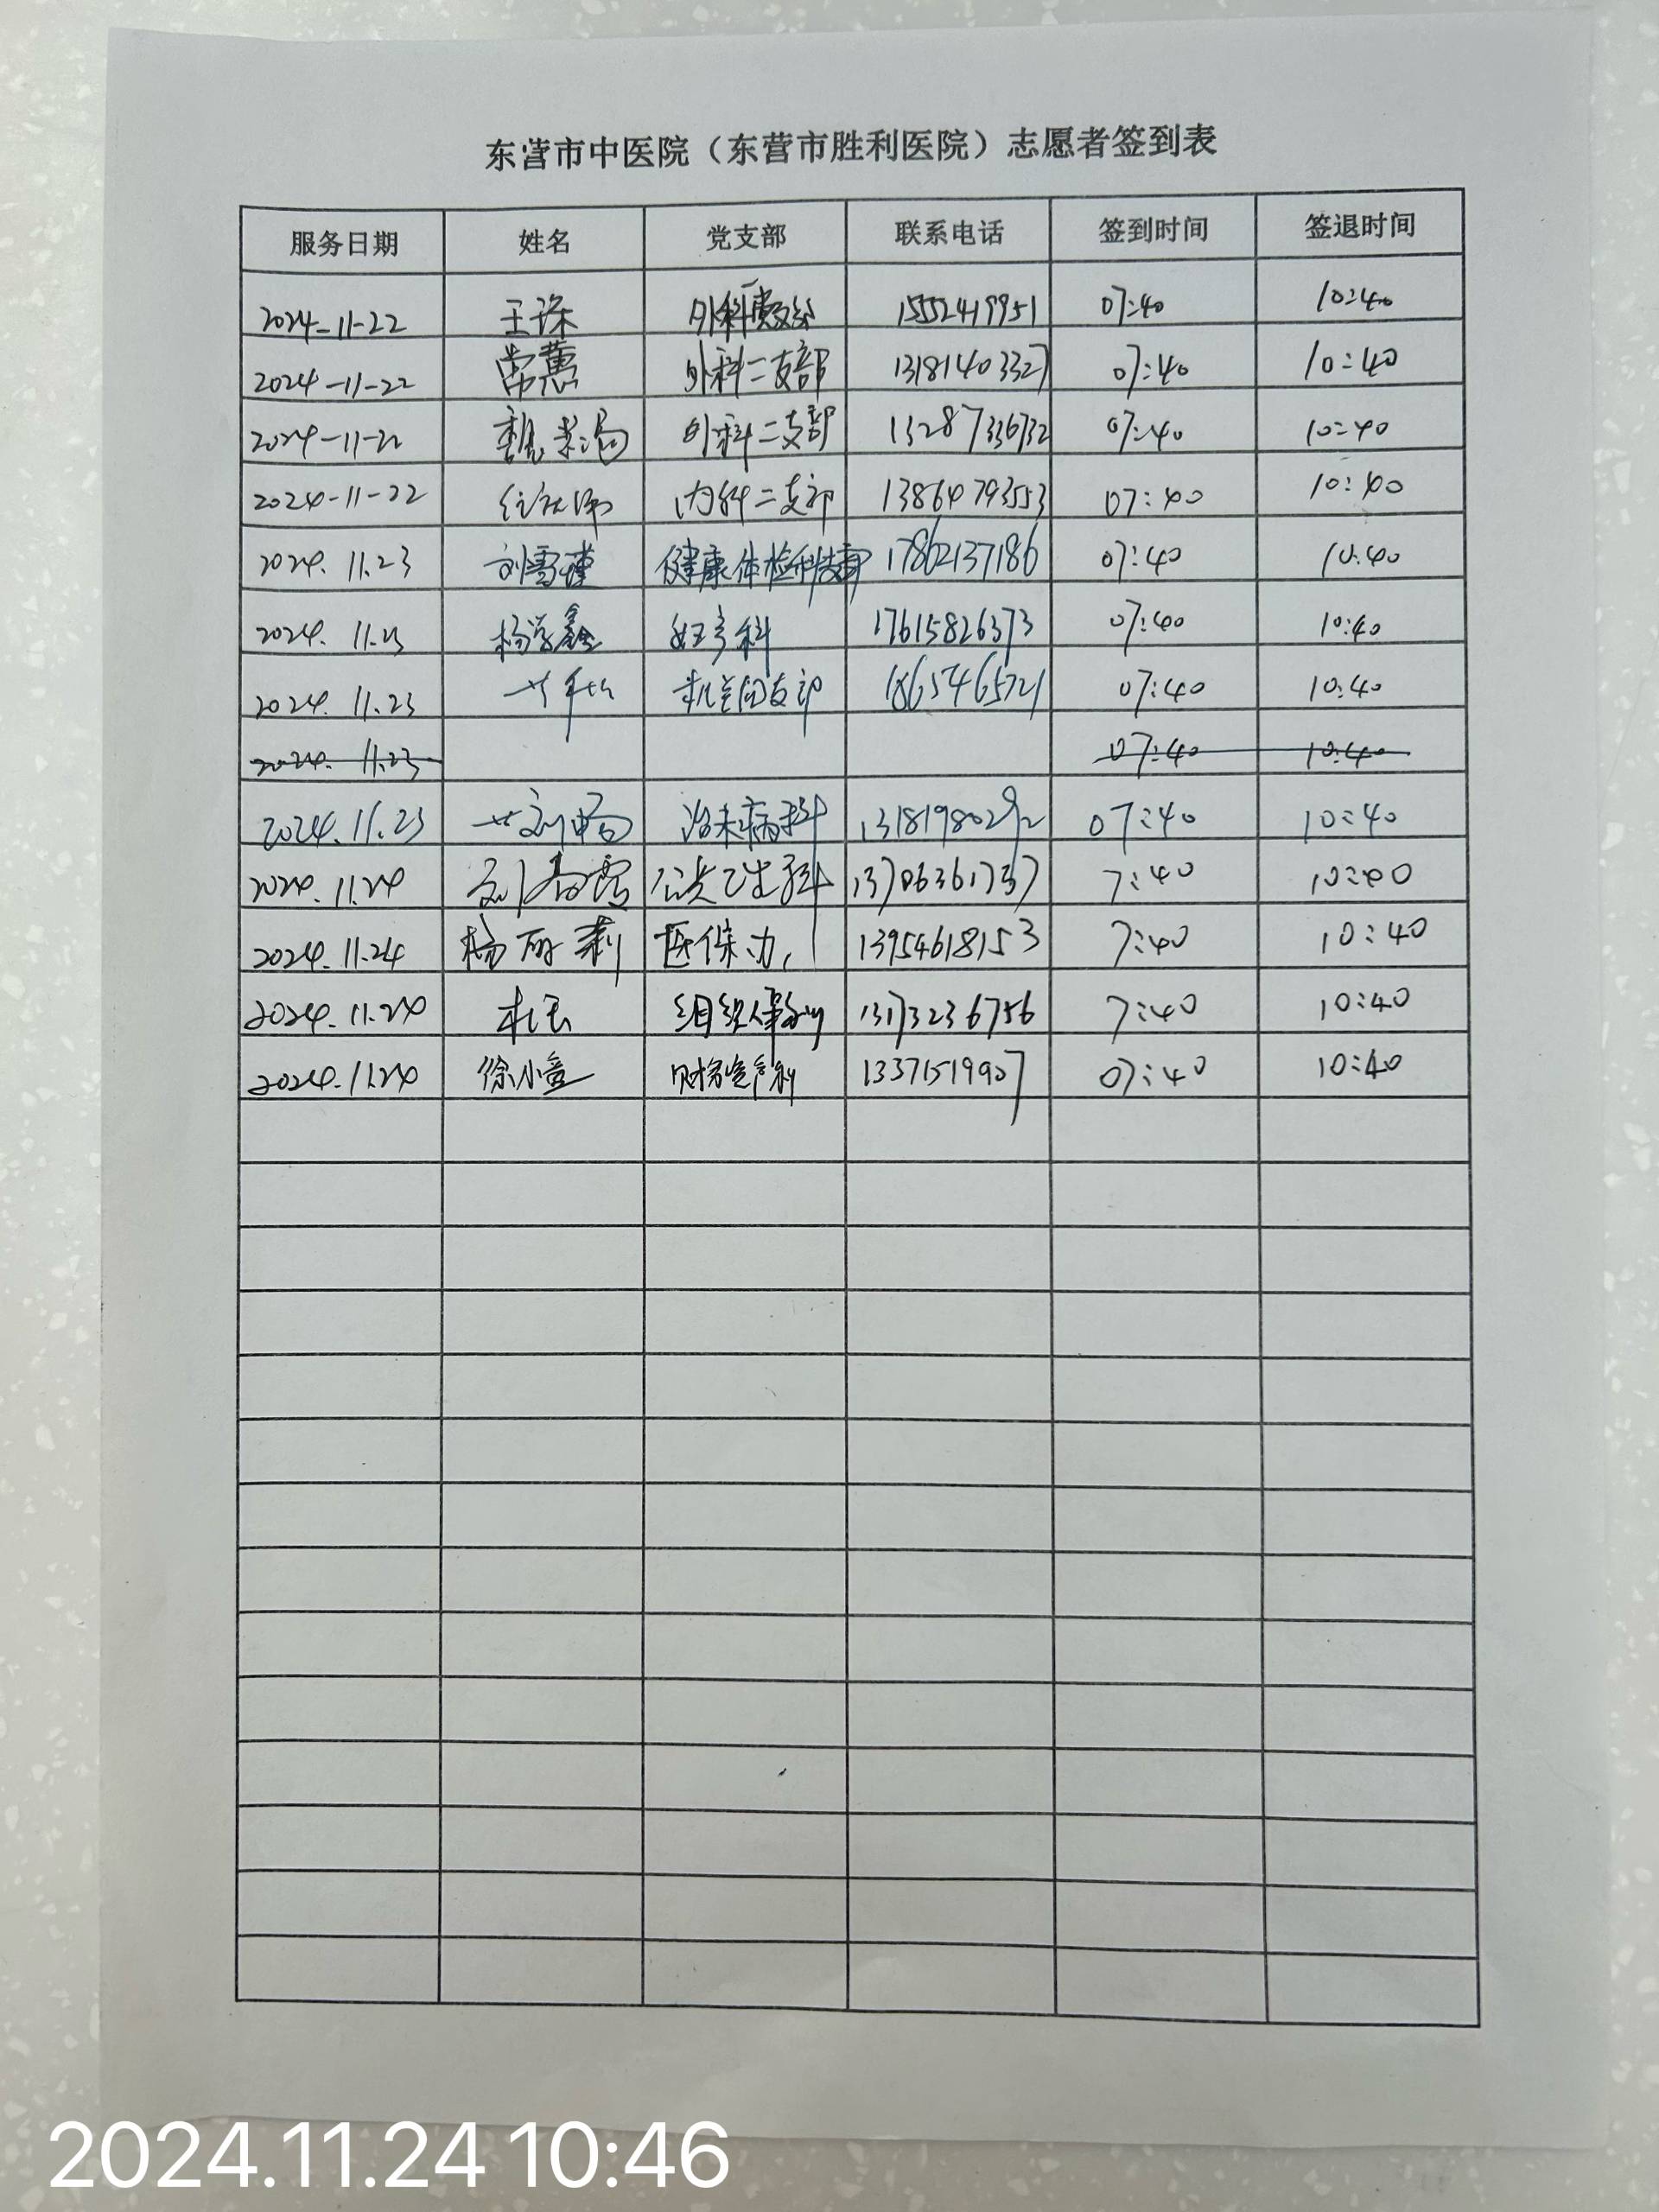 东营市中医院（东营市胜利医院）志愿者签到表
服务日期 姓名 党支部 联系电话 签到时间 签退时间
2024-11-22 王 外科 15552419951 07:40 10:40
2024-11-22 常蕙 外科二支部 13181403327 07:40 10:40
2024-11-22 魏 外科二支部 13287336732 07:40 10:40
2024-11-22 内科二支部 13864793553 07:40 10:40
2024.11.23 刘雪瑾 健康体检科支部 17862137186 07:40 10:40
2024.11.23 杨学鑫 妇产科 17615826373 07:40 10:40
2024.11.23 支部 18654665721 07:40 10:40
2024.11.23 07:40 10:40
2024.11.23 刘 治未病科 13181980292 07:40 10:40
2024.11.24 刘春霞 公共卫生科 13706361737 7:40 10:40
2024.11.24 杨丽莉 医保办 13954618153 7:40 10:40
2024.11.24 组织人事科 13173236756 7:40 10:40
2024.11.24 徐小 财务资产科 13371519907 07:40 10:40
2024.11.24 10:46